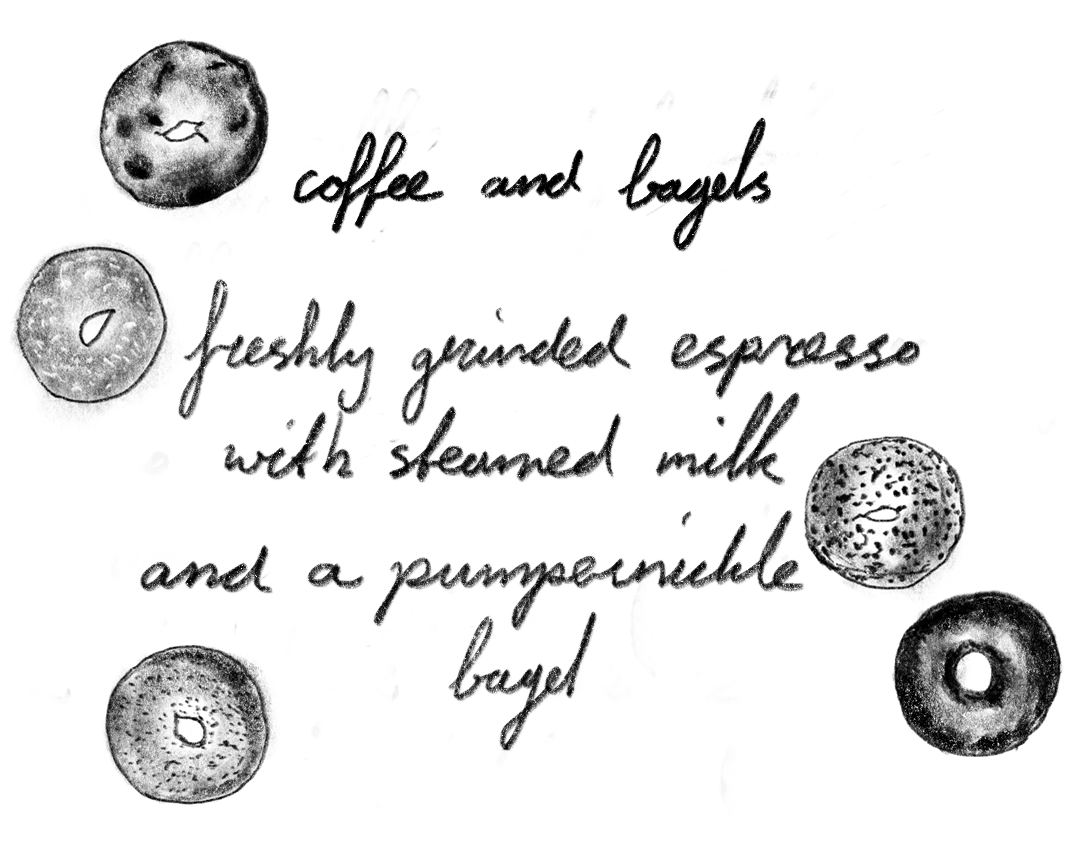 coffee and bagels
freshly grinded espresso
with steamed milk
and a pumpernickle
bagel